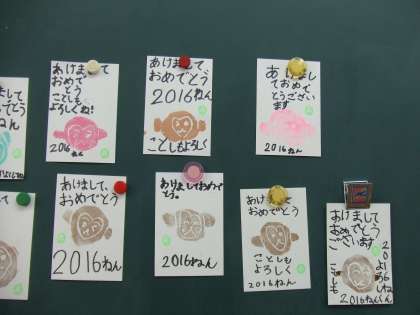 あけまして
おめで
とう
ことしも
よろしくね!
2016ねん
あけまして
おめでとう
2016ねん
ことしもよろしく
あけまし
ておめで
とうござい
ます
2016ねん
あけまして、
おめでとう
2016ねん
おめで
とう。
2016ねん
あけまして
おめでとう
ことしも
よろしく
2016ねん
あけまして
おめでとう
ございます
ことしも